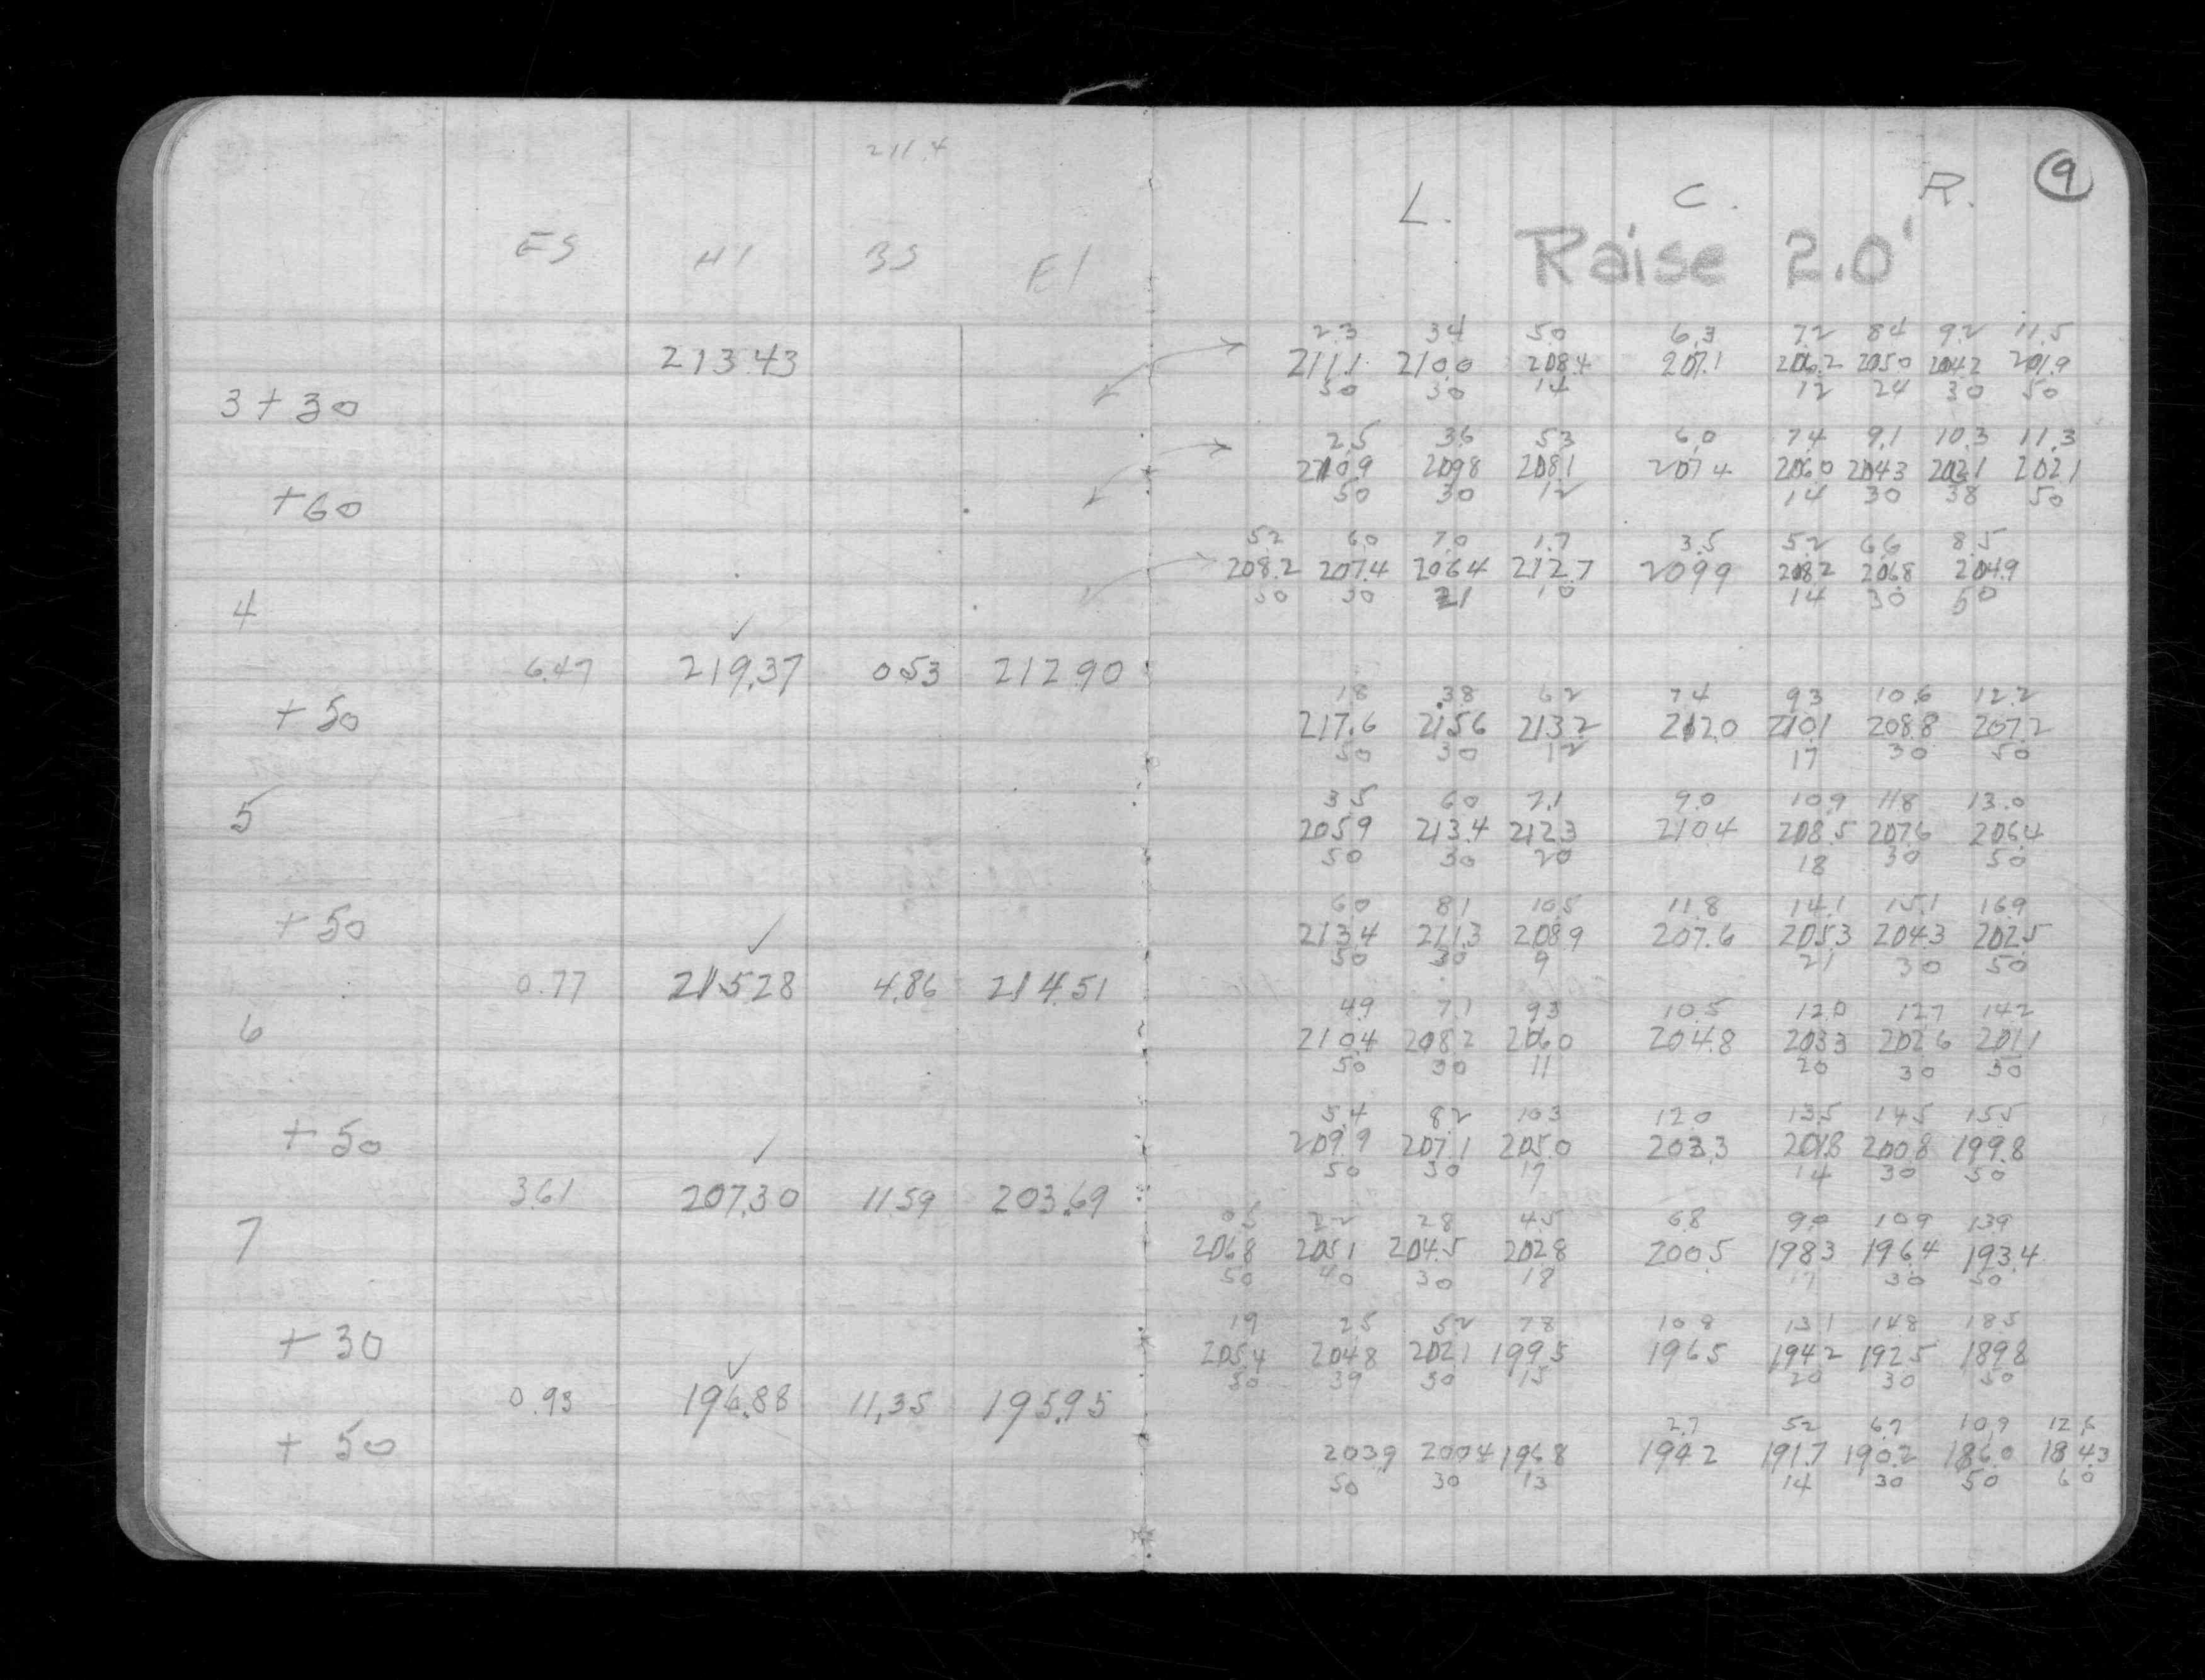 211.4
L. C. R. 9
FS HI BS El
Raise 2.0'
2.3 3.4 5.0 6.3 7.2 8.4 9.2 11.5
213.43 211.1 210.0 208.4 207.1 206.2 205.0 204.2 201.9
3+30 50 30 14 12 24 30 50
2.5 3.6 5.3 6.0 7.4 9.1 10.3 11.3
210.9 209.8 208.1 207.4 206.0 204.3 202.1 202.1
+60 50 30 12 14 30 38 50
5.2 6.0 7.0 1.7 3.5 5.2 6.6 8.5
208.2 207.4 206.4 212.7 209.9 208.2 206.8 204.9
4 50 30 21 10 14 30 50
6.47 219.37 0.53 212.90
18 3.8 62 74 93 10.6 12.2
+50 217.6 215.6 213.2 212.0 210.1 208.8 207.2
50 30 12 17 30 50
3.5 60 7.1 9.0 10.9 118 13.0
5 205.9 213.4 212.3 210.4 208.5 207.6 206.4
50 30 20 18 30 50
60 81 10.5 11.8 14.1 15.1 169
+50 213.4 211.3 208.9 207.6 205.3 204.3 202.5
50 30 9 21 30 50
0.77 215.28 4.86 214.51
49 7.1 93 10.5 12.0 127 142
6 210.4 208.2 206.0 204.8 203.3 202.6 201.1
50 30 11 20 30 50
5.4 82 103 120 13.5 14.5 15.5
+50 209.9 207.1 205.0 203.3 201.8 200.8 199.8
50 30 17 14 30 50
3.61 207.30 11.59 203.69
05 22 28 4.5 68 90 109 139
7 206.8 205.1 204.5 202.8 200.5 198.3 196.4 193.4
50 40 30 18 17 30 50
19 25 52 78 108 131 148 185
+30 205.4 204.8 202.1 199.5 196.5 194.2 192.5 189.8
50 39 30 15 20 30 50
0.93 196.88 11.35 195.95
2.7 52 6.7 10.9 12.6
+50 203.9 200.4 196.8 194.2 191.7 190.2 186.0 184.3
50 30 13 14 30 50 60